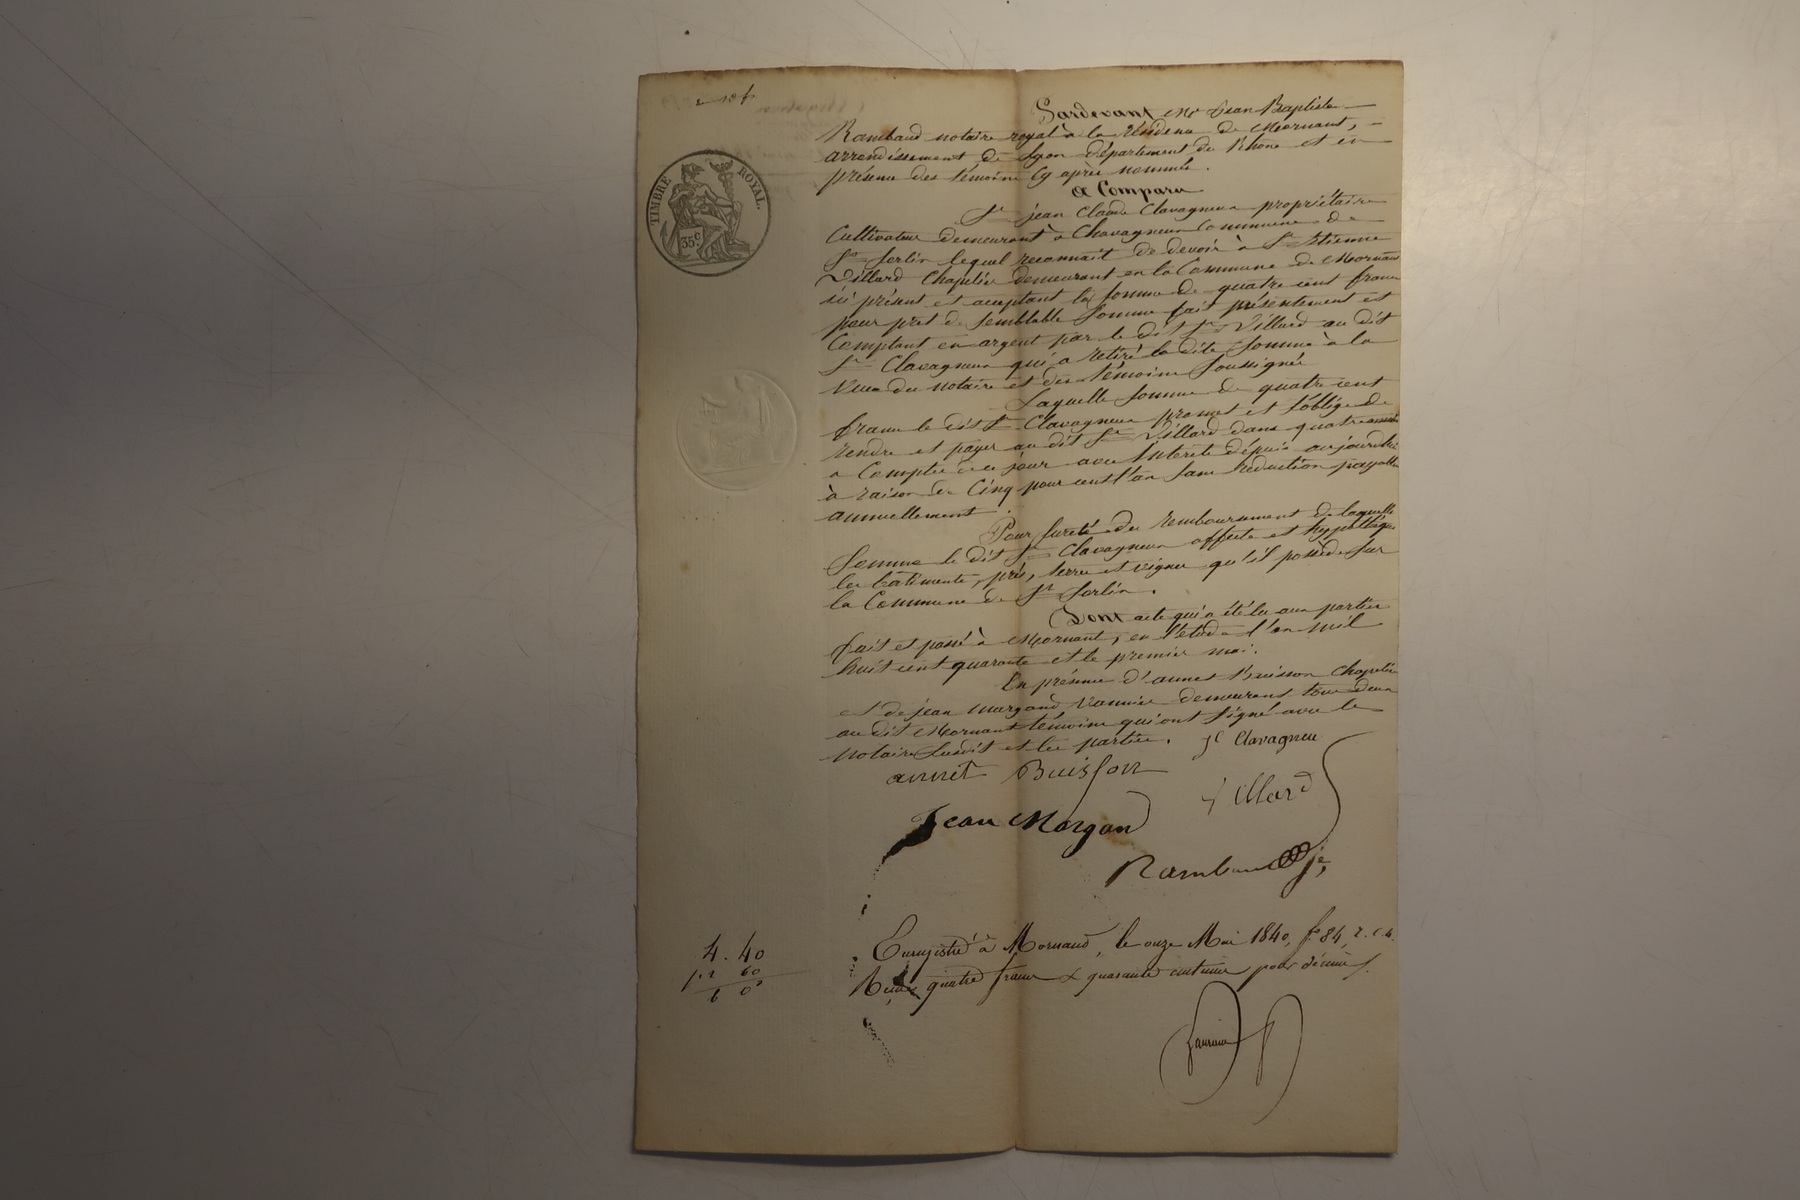 TIMBRE ROYAL.
35 c.
Pardevant Me Jean Baptiste
Rambaud notaire royal à la résidence de Mornant,
arrondissement de Lyon département du Rhône et en
présence des témoins cy après nommés.
a Comparu
Sr jean Claude Clavagneux propriétaire
Cultivateur demeurant à Chavagneux Commune de
St Sorlin lequel reconnait de devoir à Sr Etienne
Villard Chapelier demeurant en la Commune de Mornant
ici présent et acceptant la somme de quatre cent francs
pour prêt de semblable somme fait présentement et
Comptant en argent par le dit Sr Villard au dit
Sr Clavagneux qui a retiré la dite somme à la
vue du notaire et des témoins soussignés
Laquelle somme de quatre cent
francs le dit Sr Clavagneux promet et s'oblige de
rendre et payer au dit Sr Villard dans quatre années
a Compter de ce jour avec Intérêts dépuis aujourdhui
à raison de Cinq pour cent l'an sans réduction payable
annuellement.
Pour sureté du remboursement de laquelle
somme le dit Sr Clavagneux affecte et hypothèque
les bâtiments, prés, terres et vignes qu'il possède sur
la Commune de St Sorlin.
Dont acte qui a été lu aux parties
fait et passé à Mornant, en l'étude l'an mil
huit cent quarante et le premier mai.
En présence d'annet Buisson Chapelier
et de jean margand vannier demeurant tous deux
au dit Mornant témoins qui ont signé avec le
Notaire susdit et les parties. jC Clavagneu
annet Buisson
Villard
Jean Morgand
Rambaud
4.40
60
Enregistré à Mornand, le onze Mai 1840, f° 84, r. c. 4.
Reçu quatre francs & quarante centimes pour décime